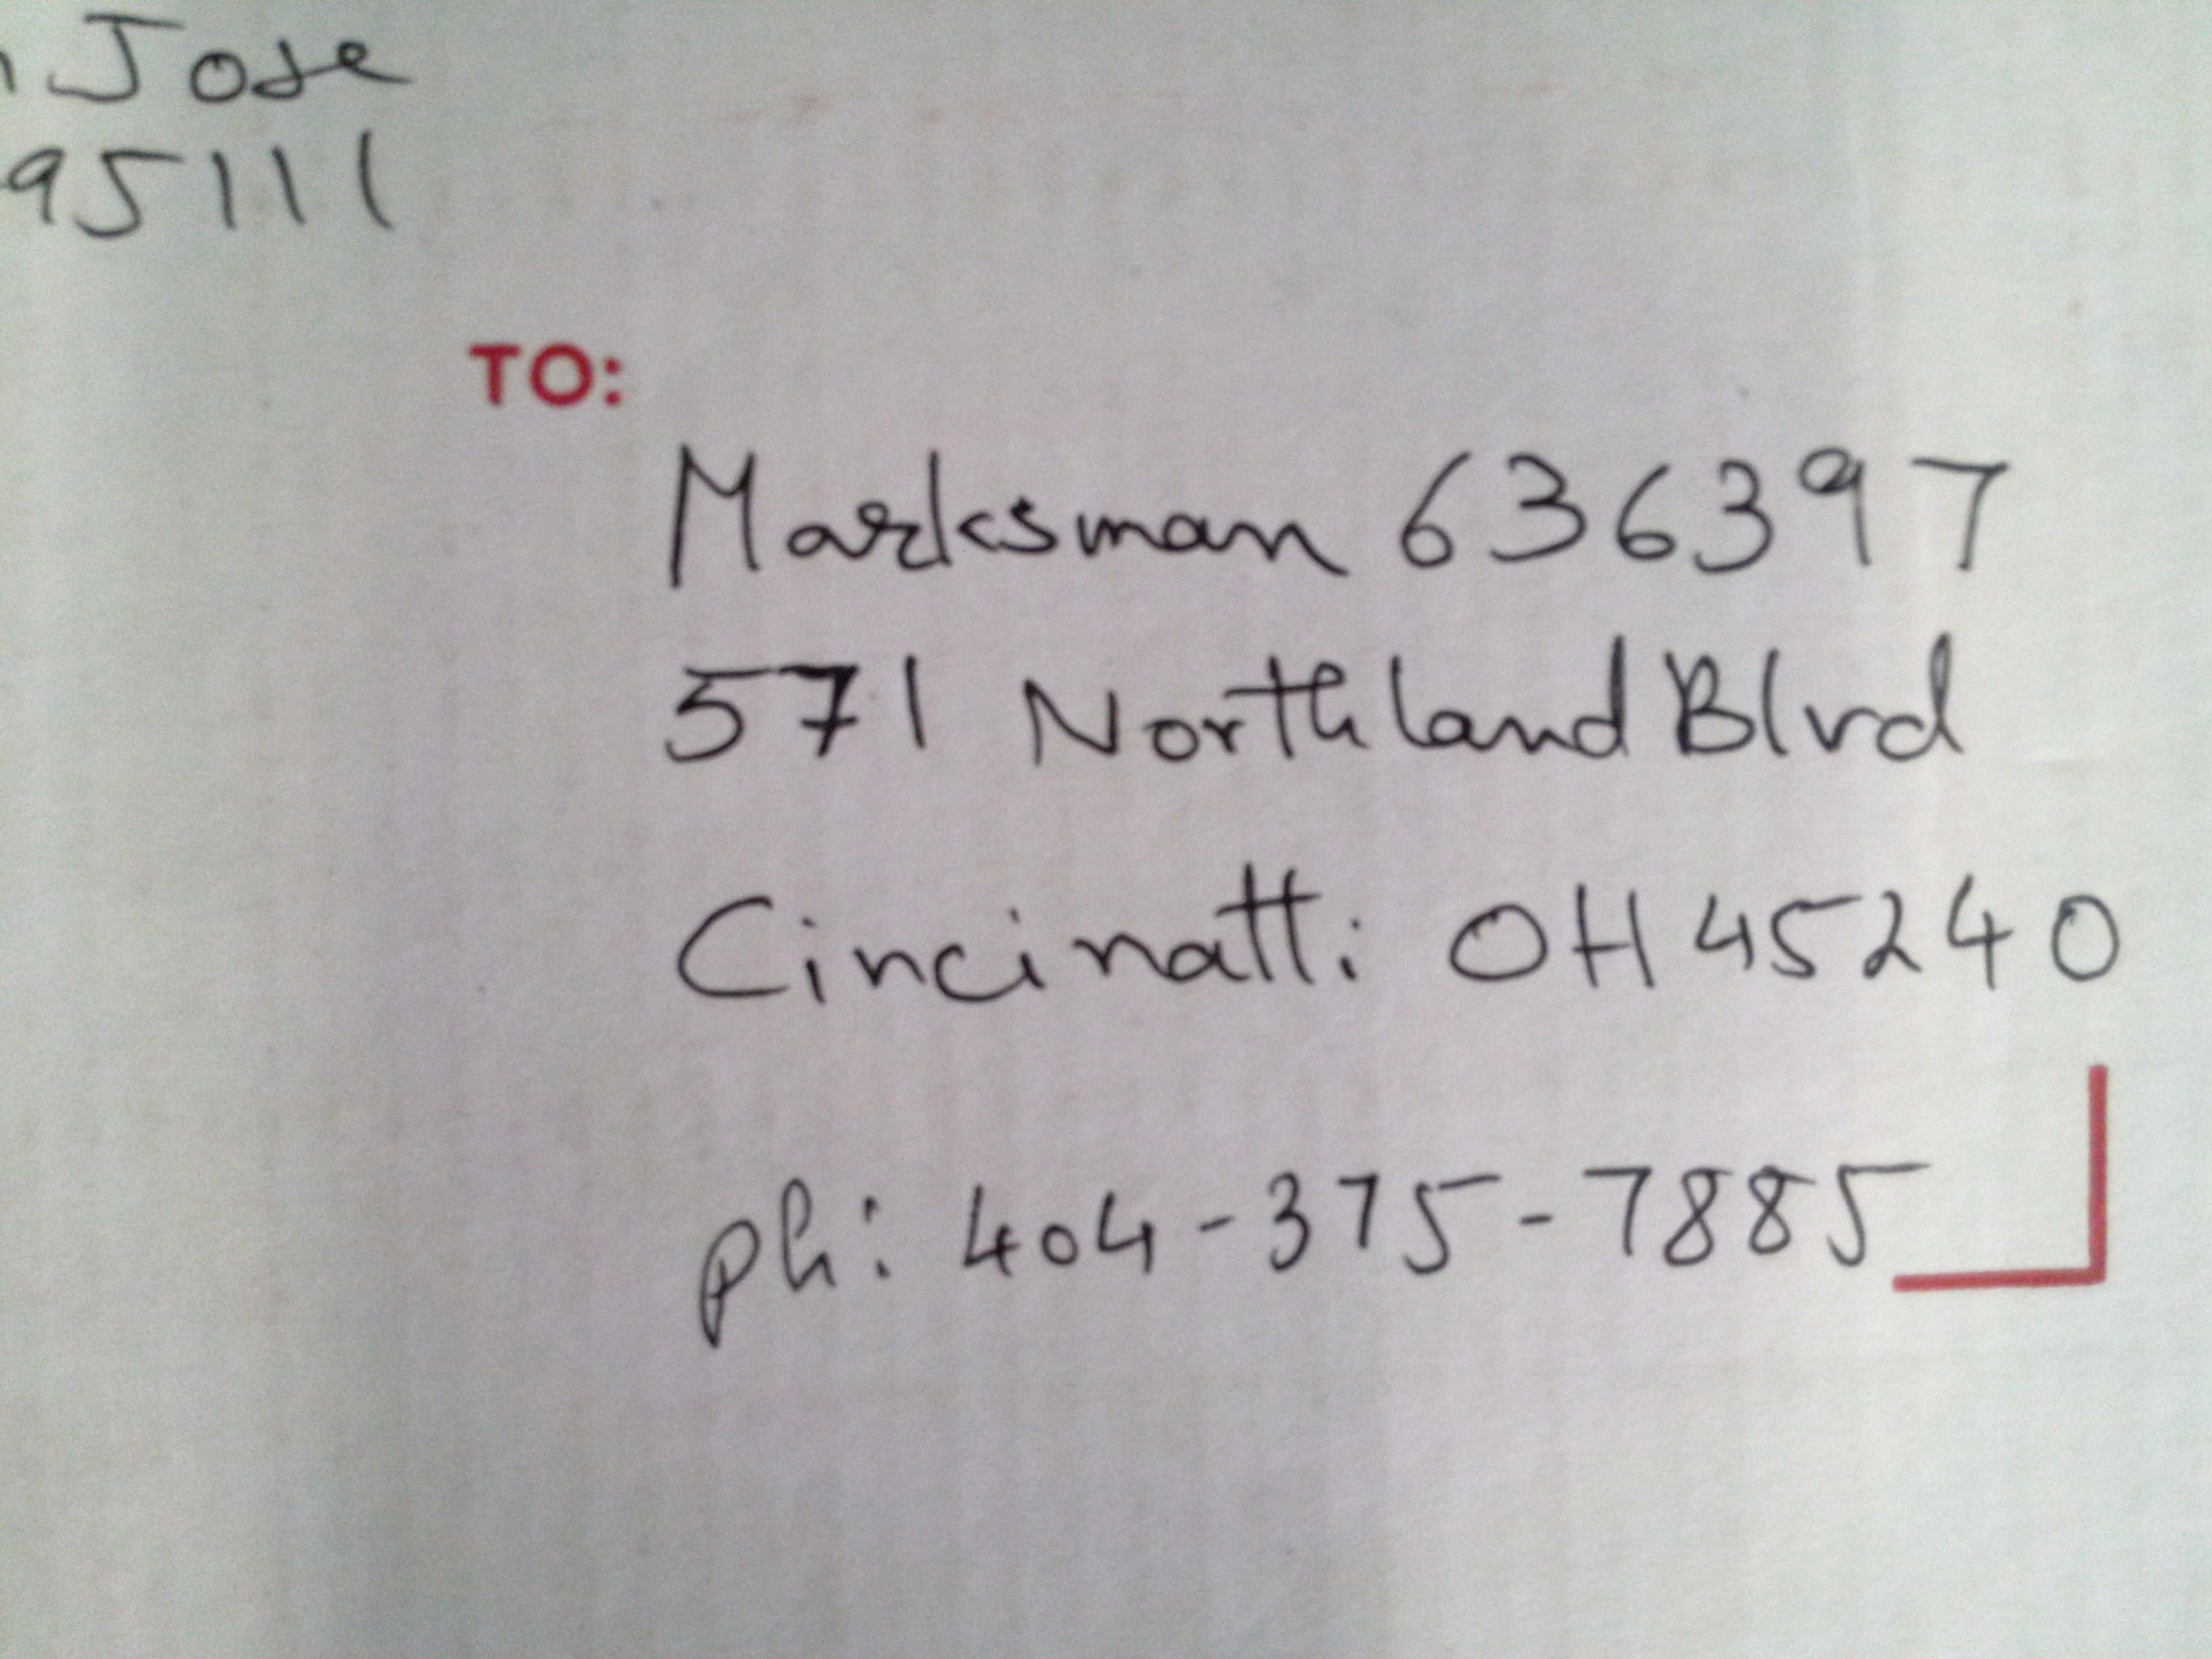 Jose
95111
TO:
Marksman 636397
571 Northland Blvd
Cincinatti OH 45240
ph: 404-375-7885